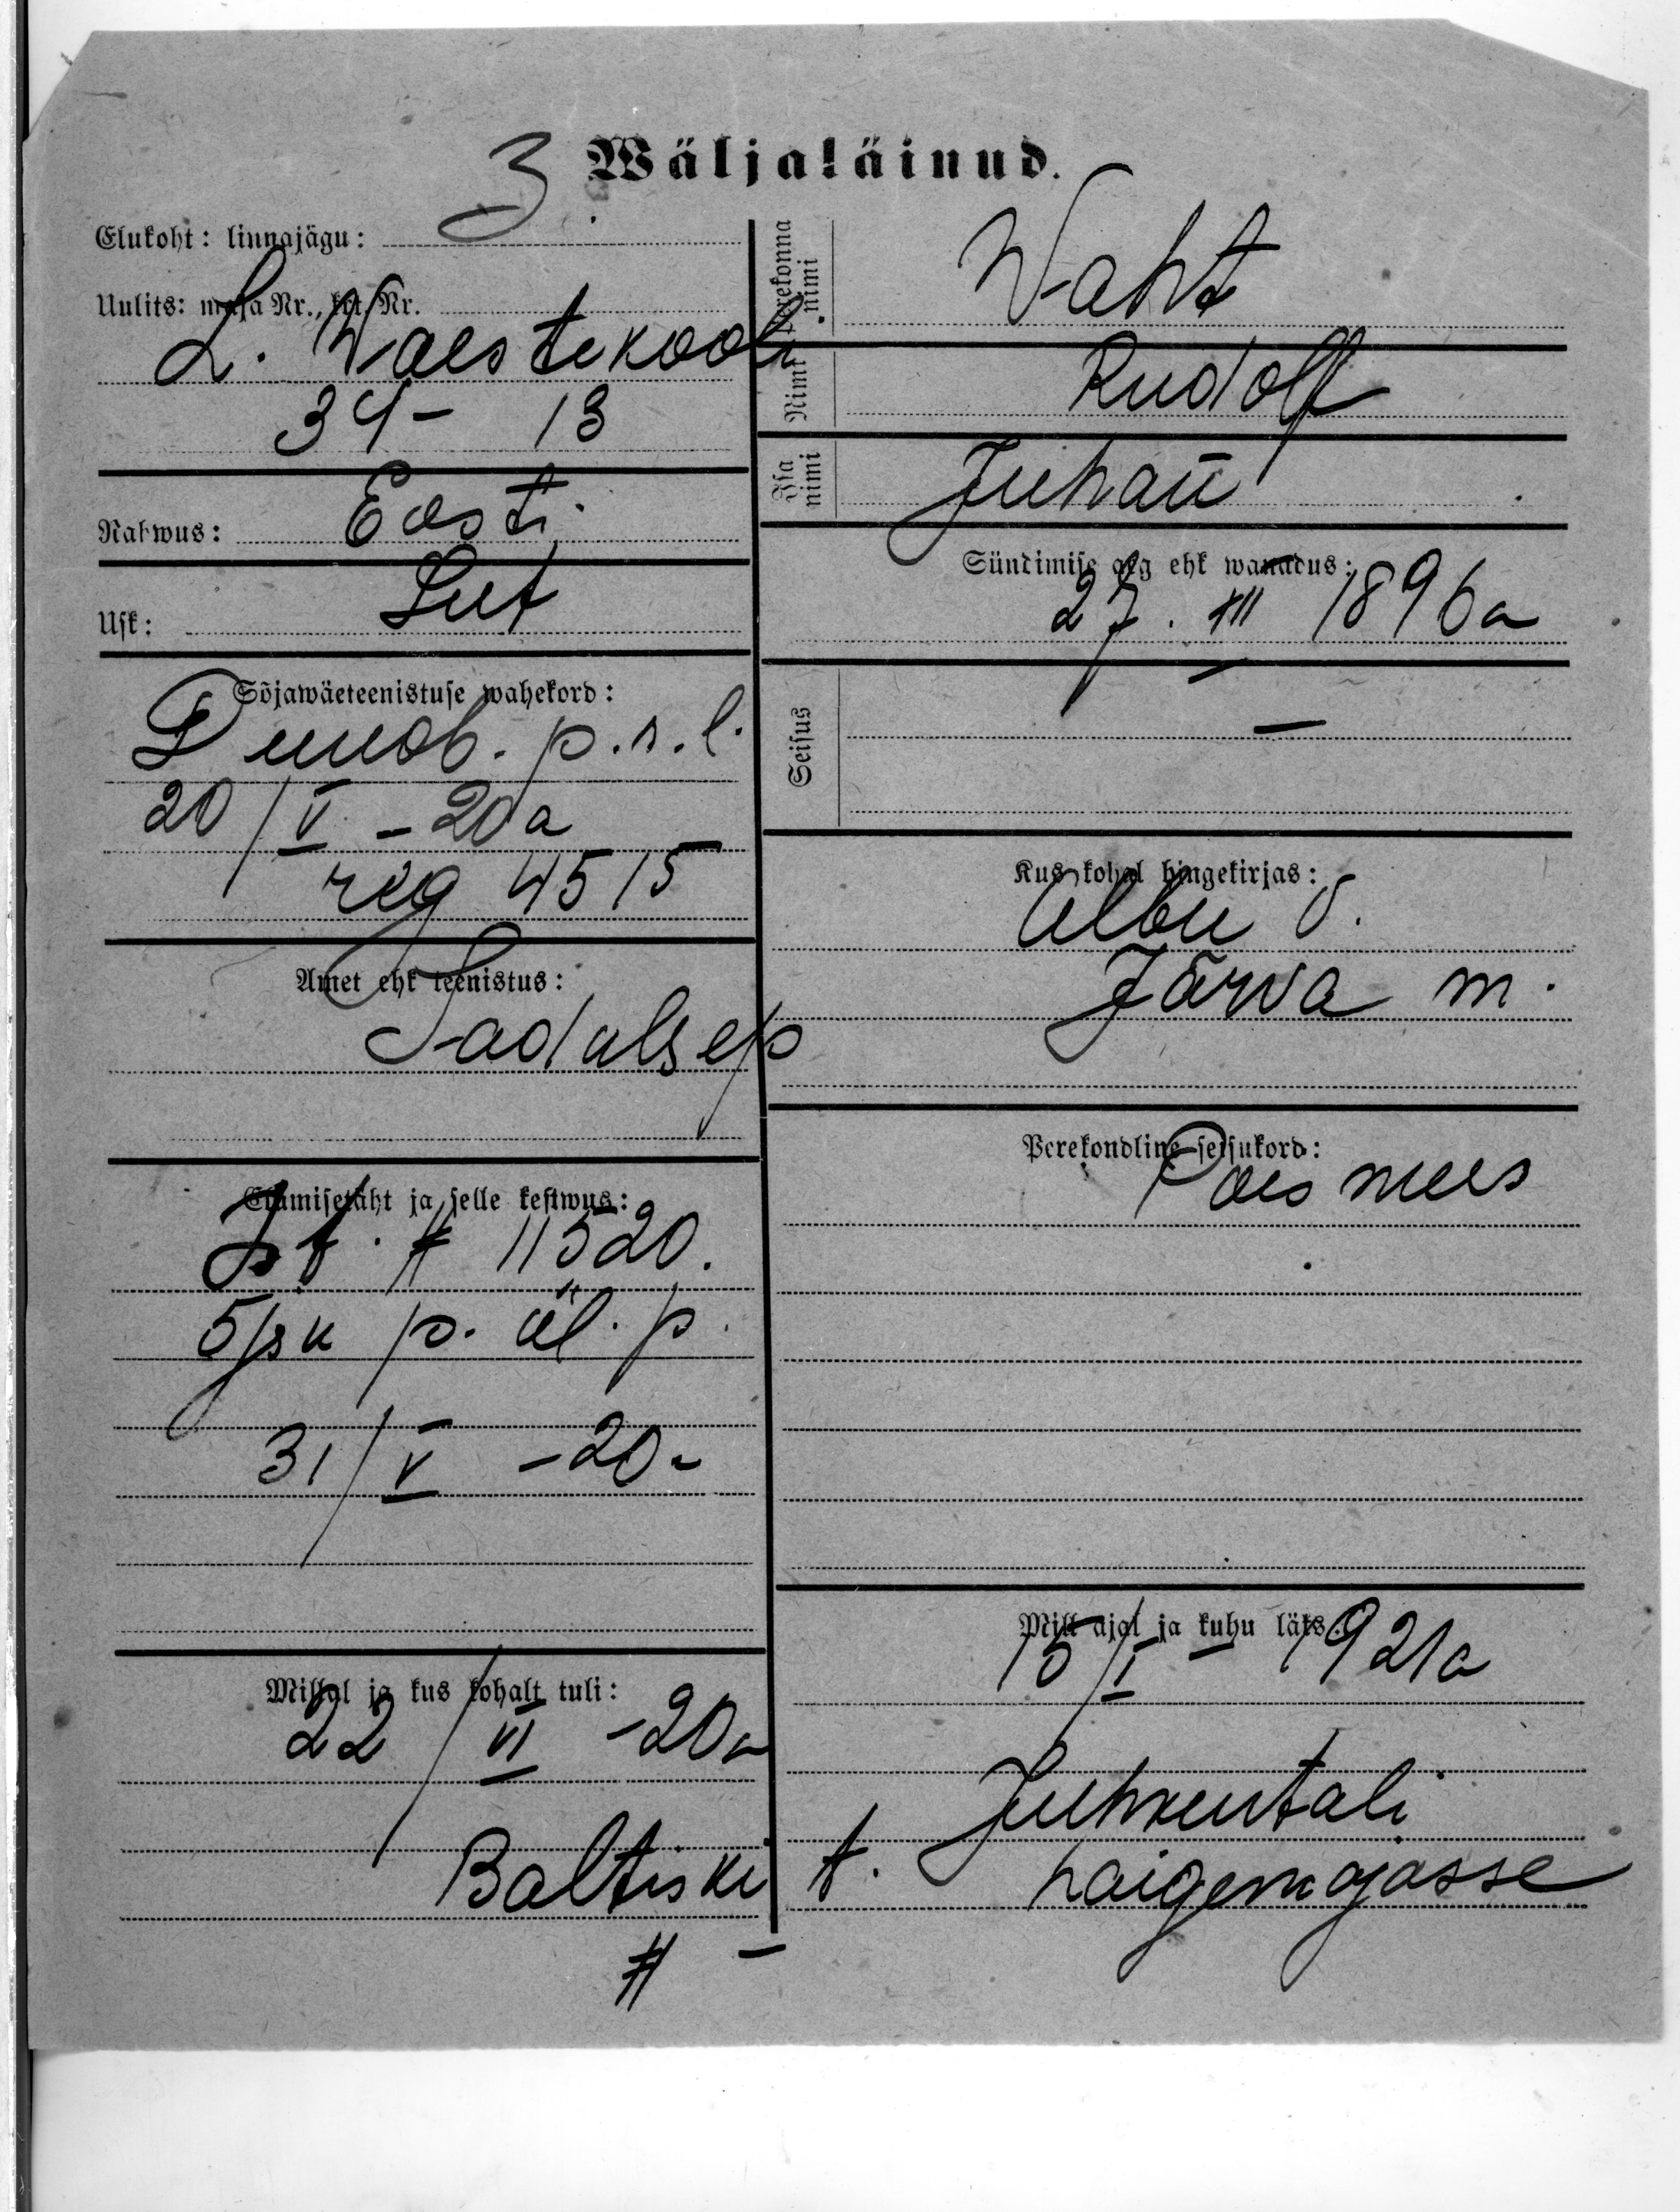 Wäljaläinud.
Elukoht: linnajägu: 3
Uulits: maja Nr., krt. Nr.
L. Waestekooli
34 - 13
Rahwus: Eesti
Usk: Lut
Sõjawäeteenistuse wahekord:
Demob. p.s.l.
20/V - 20 a
reg 4515
Amet ehk teenistus:
Sadulsep
Elamisetäht ja selle kestwus:
11520.
p. ül. p.
31/V - 20 a
Millal ja kus kohalt tuli:
22/VI - 20 a
Baltiski
Perekonna nimi
Waht
Nimi
Rudolf
Isa nimi
Juhan
Sündimise aeg ehk wanadus:
27. XII 1896 a
Seisus
—
Kus kohal hingekirjas:
Albu v.
Järva m.
Perekondline seisukord:
Poes mees
Mill ajal ja kuhu läks:
15/I - 1921 a
Juhkentali
t. haigemajasse